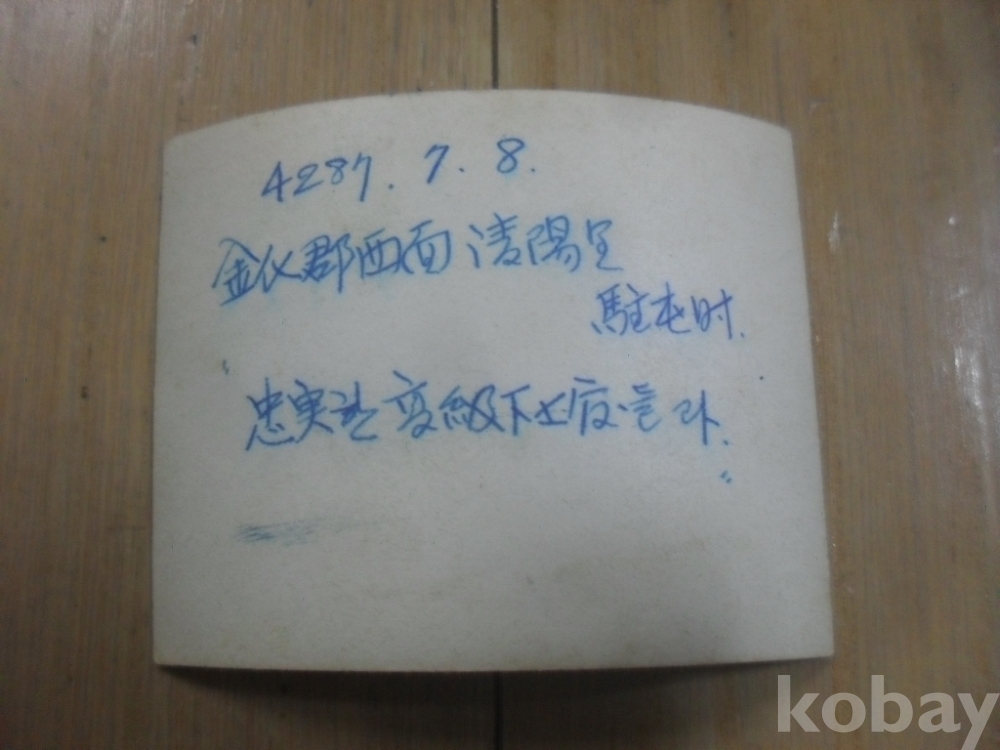 4287. 7. 8.
金化郡西面淸陽里
駐屯时.
"忠実한 高級下士官들과."
kobay